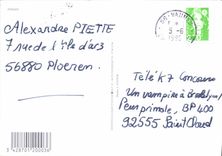 Alexandre PIETTE
7 rue de l'île d'arz
56880 Ploeren.
Télé K7 Concours
Un vampire à Brooklyn
Pen primole, BP 400
92555 Saint Cloud
3 428701 200036